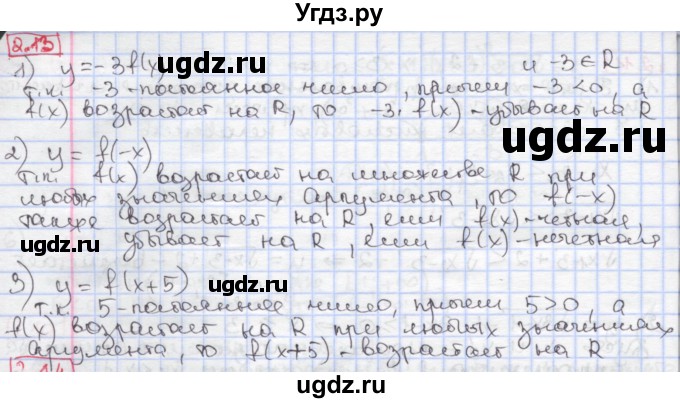 Угдз.ру
2.13
1) y=-3f(x) и -3∈R
Т.к. -3-постоянное число, причем -3<0, а
f(x) возрастает на R, то -3·f(x)-убывает на R
ugdz.ru ugdz.ru
2) y= f(-x)
Т.к. f(x) возрастает на множестве R при
любых значениях аргумента, то f(-x)
также возрастает на R, если f(x)-четная,
убывает на R, если f(x)-нечетная
ugdz.ru ugdz.ru
3) y= f(x+5)
Т.к. 5-постоянное число, причем 5>0, а
f(x) возрастает на R при любых значениях
аргумента, то f(x+5)-возрастает на R
ugdz.ru ugdz.ru
2.14
ugdz.ru